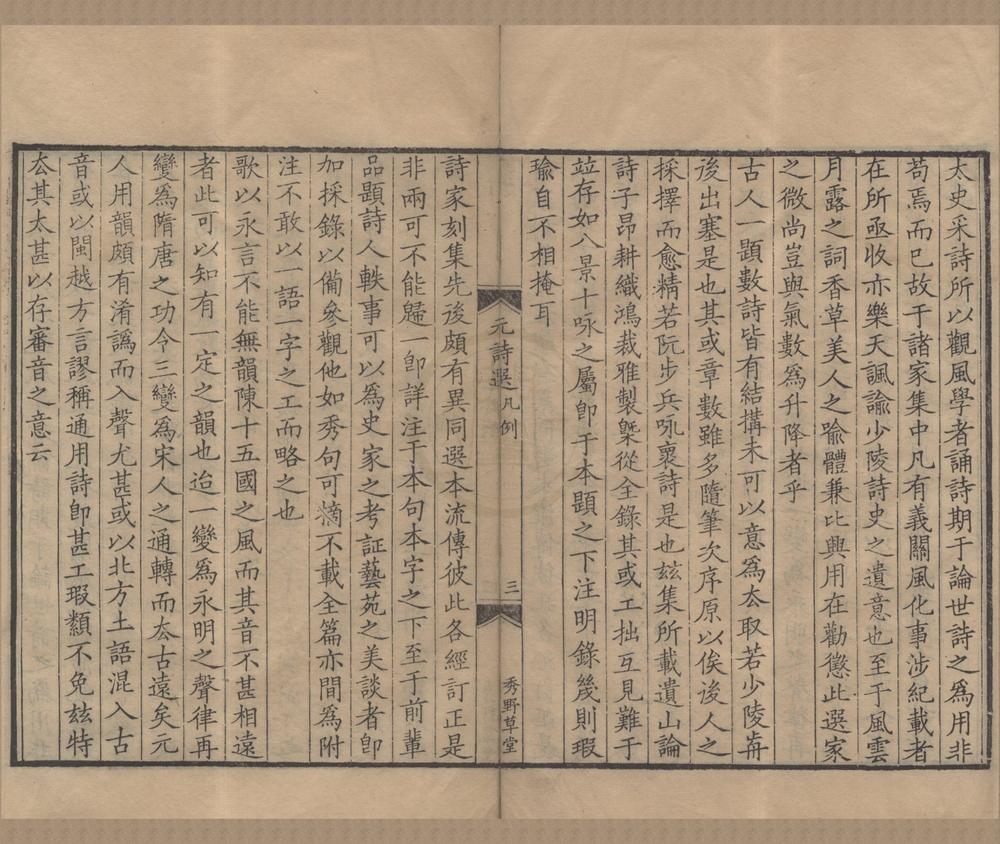 太史采詩所以觀風學者誦詩期于論世詩之為用非
苟焉而已故于諸家集中凡有義關風化事涉紀載者
在所亟收亦樂天諷諭少陵詩史之遺意也至于風雲
月露之詞香草美人之喻體兼比興用在勸懲此選家
之微尚豈與氣數為升降者乎
古人一題數詩皆有結構未可以意為厺取若少陵前
後出塞是也其或章數雖多隨筆次序原以俟後人之
採擇而愈精若阮步兵咏褱詩是也玆集所載遺山論
詩子昂耕織鴻裁雅製槩從全錄其或工拙互見難于
竝存如八景十咏之屬卽于本題之下注明錄幾則瑕
瑜自不相掩耳
元詩選凡例
三
秀野草堂
詩家刻集先後頗有異同選本流傳彼此各經訂正是
非兩可不能歸一卽詳注于本句本字之下至于前輩
品題詩人軼事可以為史家之考証藝苑之美談者卽
加採錄以備參觀他如秀句可摘不載全篇亦間為附
注不敢以一語一字之工而略之也
歌以永言不能無韻陳十五國之風而其音不甚相遠
者此可以知有一定之韻也迨一變為永明之聲律再
變為隋唐之功令三變為宋人之通轉而厺古遠矣元
人用韻頗有淆譌而入聲尤甚或以北方土語混入古
音或以閩越方言謬稱通用詩卽甚工瑕纇不免玆特
厺其太甚以存審音之意云